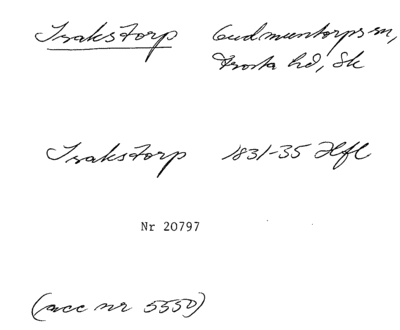 Isakstorp Gudmuntorps sn,
Frosta hd, Sk
Isakstorp 1831-35 Hfl
Nr 20797
(acc nr 5550)